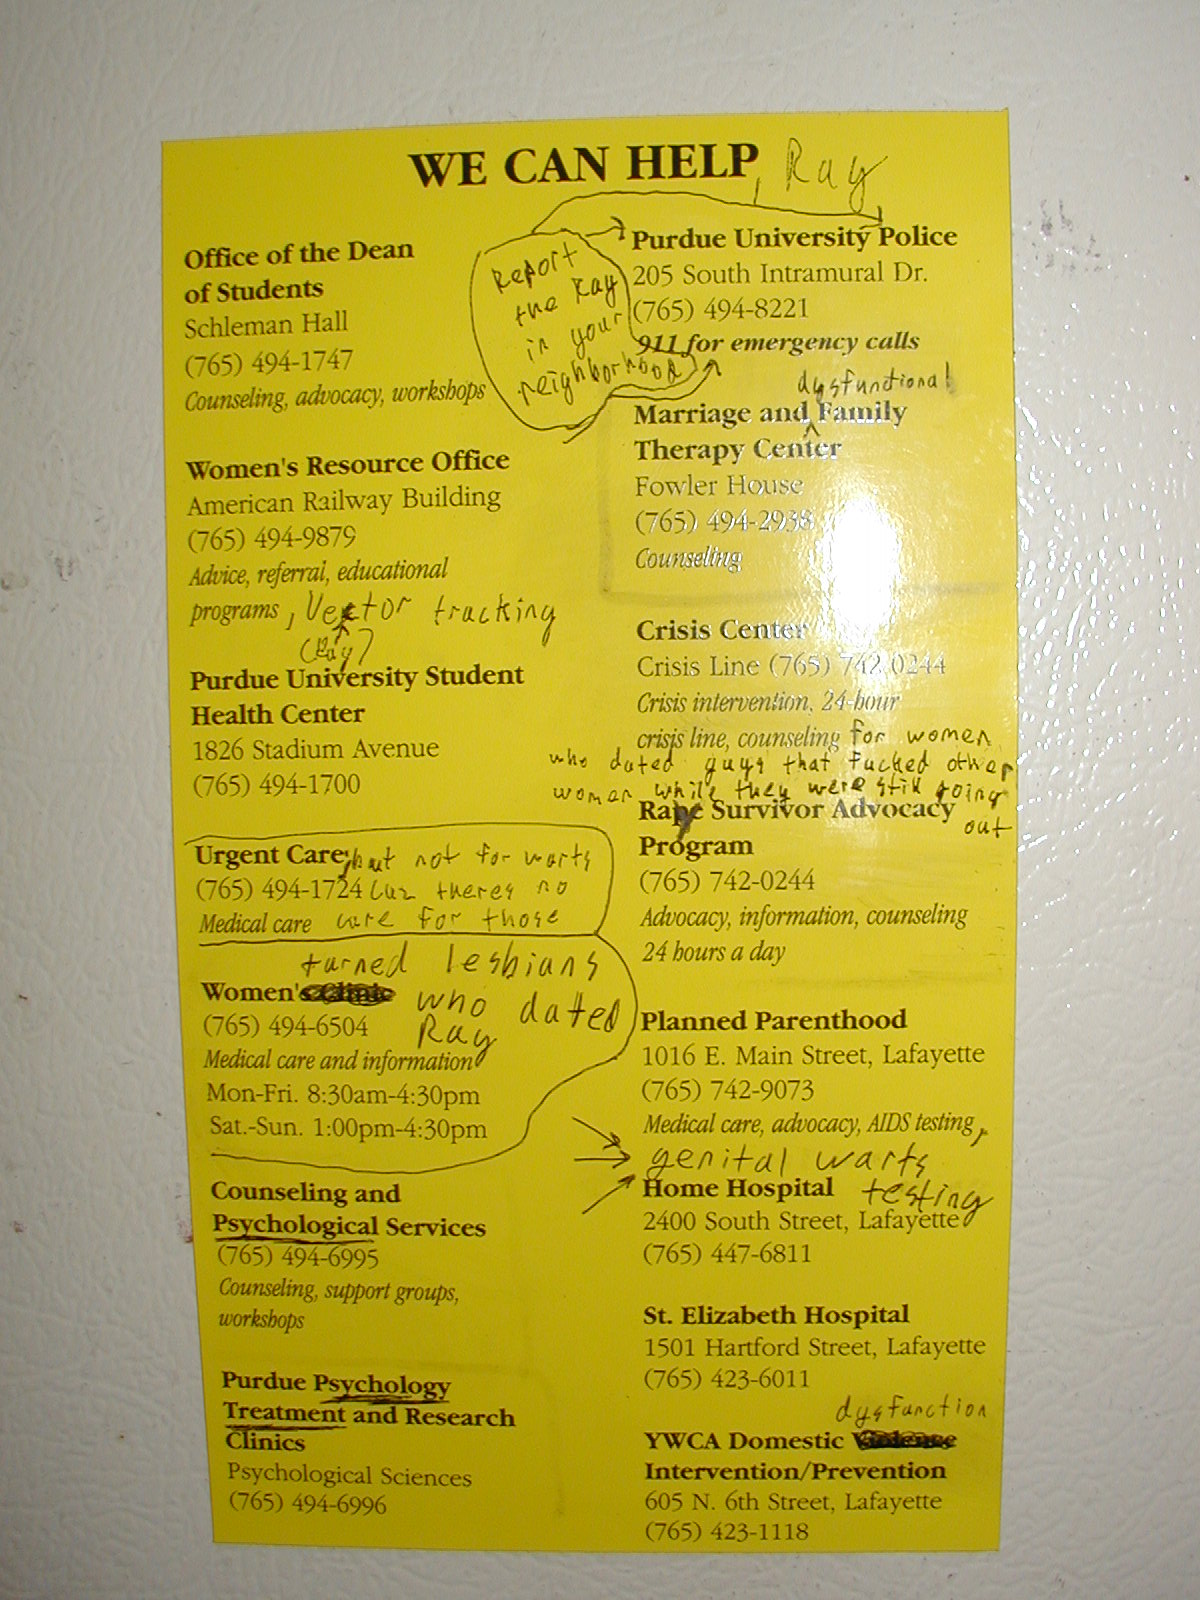 WE CAN HELP, Ray
Office of the Dean
of Students
Schleman Hall
(765) 494-1747
Counseling, advocacy, workshops
Women's Resource Office
American Railway Building
(765) 494-9879
Advice, referral, educational
programs, Vector tracking
(Ray)
Purdue University Student
Health Center
1826 Stadium Avenue
(765) 494-1700
Urgent Care, but not for warts
(765) 494-1724 cuz theres no
Medical care cure for those
turned lesbians
Women's Clinic who dated
(765) 494-6504 Ray
Medical care and information
Mon-Fri. 8:30am-4:30pm
Sat.-Sun. 1:00pm-4:30pm
Counseling and
Psychological Services
(765) 494-6995
Counseling, support groups,
workshops
Purdue Psychology
Treatment and Research
Clinics
Psychological Sciences
(765) 494-6996
Report
the Ray
in your
neighborhood
Purdue University Police
205 South Intramural Dr.
(765) 494-8221
911 for emergency calls
dysfunctional
Marriage and Family
Therapy Center
Fowler House
(765) 494-2938
Counseling
Crisis Center
Crisis Line (765) 742-0244
Crisis intervention, 24-hour
crisis line, counseling for women
who dated guys that fucked other
women while they were still going
out
Rape Survivor Advocacy
Program
(765) 742-0244
Advocacy, information, counseling
24 hours a day
Planned Parenthood
1016 E. Main Street, Lafayette
(765) 742-9073
Medical care, advocacy, AIDS testing,
genital warts
testing
Home Hospital
2400 South Street, Lafayette
(765) 447-6811
St. Elizabeth Hospital
1501 Hartford Street, Lafayette
(765) 423-6011
dysfunction
YWCA Domestic Violence
Intervention/Prevention
605 N. 6th Street, Lafayette
(765) 423-1118